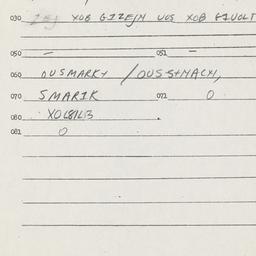 030 XOB GIZEJM UOS XOB GIVOLT
050 — 051 —
060 DUSMARKY / DUSSTMACM,
070 SMARIK 071 0
080 XOL81LB
081 0